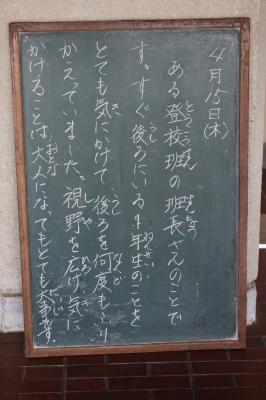 4月15日(木)
ある登校班の班長さんのことで
す。すぐ後ろにいる1年生のことを
とても気にかけて、後ろを何度もふり
かえっていました。視野を広げ気に
かけることは、大人になってもとても大事です。